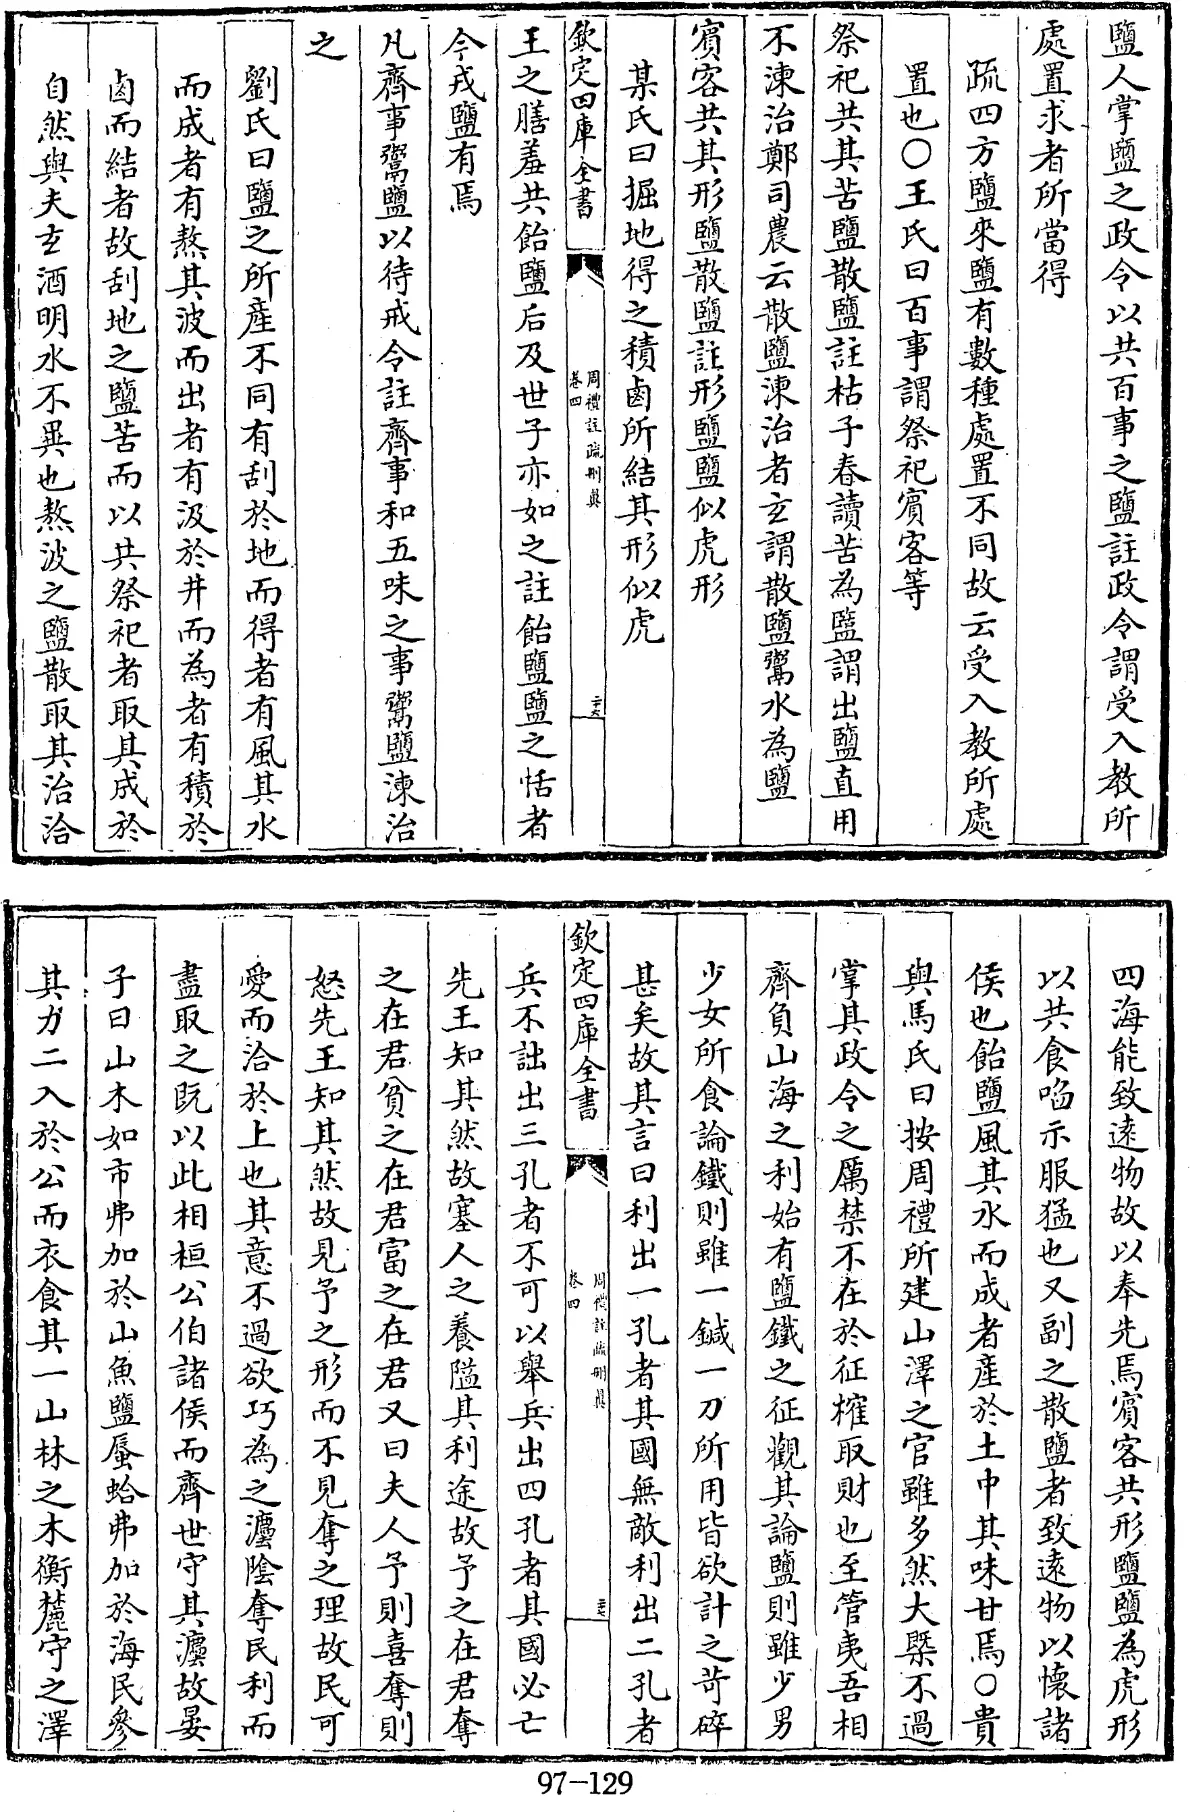 鹽人掌鹽之政令以共百事之鹽註政令謂受入教所
處置求者所當得
疏四方鹽來鹽有數種處置不同故云受入教所處
置也○王氏曰百事謂祭祀賓客等
祭祀共其苦鹽散鹽註枯子春讀苦為盬謂出鹽直用
不湅治鄭司農云散鹽湅治者玄謂散鹽鬻水為鹽
賓客共其形鹽散鹽註形鹽鹽似虎形
某氏曰掘地得之積鹵所結其形似虎
欽定四庫全書
周禮註疏刪翼
卷四
二十六
王之膳羞共飴鹽后及世子亦如之註飴鹽鹽之恬者
今戎鹽有焉
凡齊事鬻鹽以待戒令註齊事和五味之事鬻鹽湅治
之
劉氏曰鹽之所產不同有刮於地而得者有風其水
而成者有熬其波而出者有汲於井而為者有積於
鹵而結者故刮地之鹽苦而以共祭祀者取其成於
自然與夫玄酒明水不異也熬波之鹽散取其治洽
四海能致遠物故以奉先焉賓客共形鹽鹽為虎形
以共食啗示服猛也又副之散鹽者致遠物以懷諸
侯也飴鹽風其水而成者產於土中其味甘焉○貴
與馬氏曰按周禮所建山澤之官雖多然大槩不過
掌其政令之厲禁不在於征榷取財也至管夷吾相
齊負山海之利始有鹽鐵之征觀其論鹽則雖少男
少女所食論鐵則雖一鍼一刀所用皆欲計之苛碎
甚矣故其言曰利出一孔者其國無敵利出二孔者
欽定四庫全書
周禮註疏刪翼
卷四
二十七
兵不詘出三孔者不可以舉兵出四孔者其國必亡
先王知其然故塞人之養隘其利途故予之在君奪
之在君貧之在君富之在君又曰夫人予則喜奪則
怒先王知其然故見予之形而不見奪之理故民可
愛而洽於上也其意不過欲巧為之灋陰奪民利而
盡取之既以此相桓公伯諸侯而齊世守其灋故晏
子曰山木如市弗加於山魚鹽蜃蛤弗加於海民參
其力二入於公而衣食其一山林之木衡麓守之澤
97-129